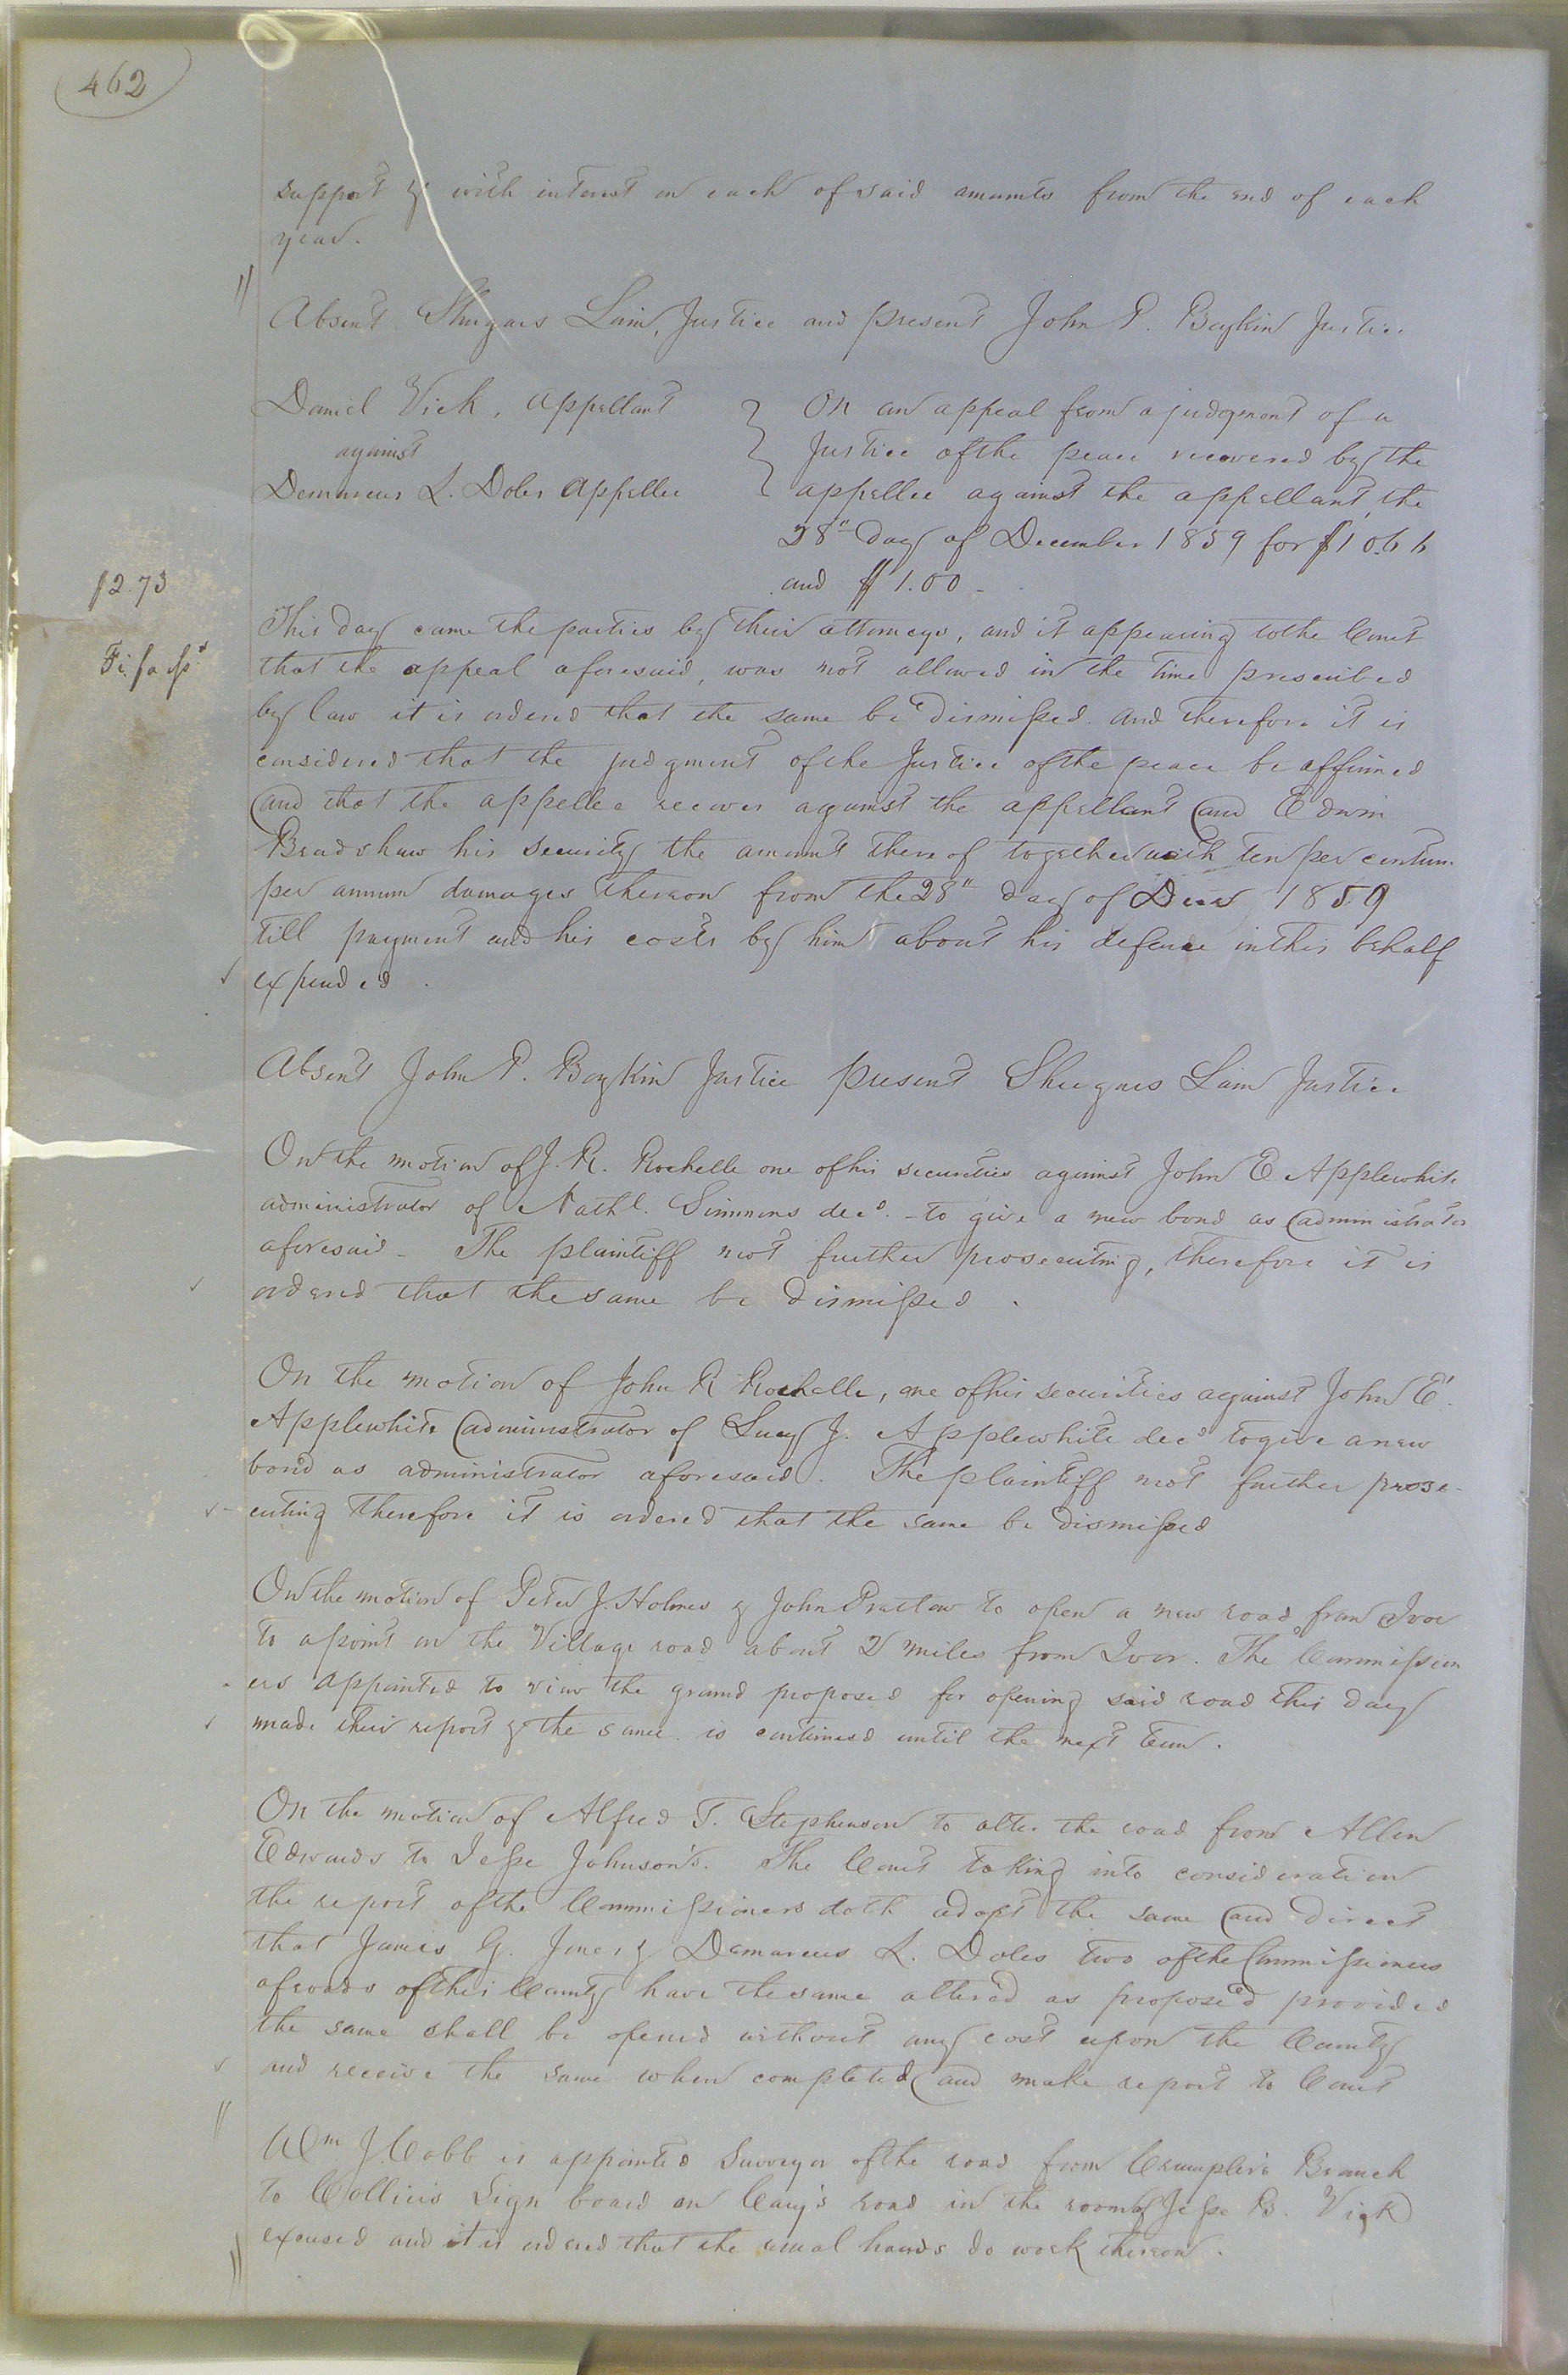 462
support & with interest on each of said amounts from the end of each
year.
Absent Shugars Lain, Justice and present John P. Boykin Justice
Daniel Vick, Appellant
against
Demarcus L. Doles Appellee
On an appeal from a judgment of a
Justice of the peace recovered by the
appellee against the appellant, the
28" day of December 1859 for $10.66
and $1.00 -
$2.73
Fi: fa
This day came the parties by their attorneys, and it appearing to the Court
that the appeal aforesaid, was not allowed in the time prescribed
by law it is ordered that the same be dismissed and therefore it is
considered that the judgment of the Justice of the peace be affirmed
and that the appellee recover against the appellant and Edwin
Bradshaw his security the amount thereof together with ten per centum
per annum damages thereon from the 28" day of Decr 1859
till payment and his costs by him about his defence in this behalf
expended.
Absent John P. Boykin Justice present Shugars Lain Justice
On the motion of J. R. Rochelle one of his securities against John E Applewhite
administrator of Nathl. Simmons decd. - to give a new bond as administrator
aforesaid - The plaintiff not further prosecuting, therefore it is
ordered that the same be dismissed.
On the motion of John R Rochelle, one of his securities against John E.
Applewhite administrator of Lucy J. Applewhite decd to give a new
bond as administrator aforesaid. The plaintiff not further prose-
cuting therefore it is ordered that the same be dismissed
On the motion of Peter J. Holmes & John Pretlow to open a new road from Ivor
to a point on the Village road about 2 miles from Ivor. The Commission
ers appointed to view the ground proposed for opening said road this day
made their report & the same is continued until the next term.
On the motion of Alfred T. Stephenson to alter the road from Allen
Edwards to Jesse Johnson's. The Court taking into consideration
the report of the Commissioners doth adopt the same and direct
that James G. Jones & Demarcus L. Doles two of the Commissioners
of roads of this County have the same altered as proposed provided
the same shall be opened without any cost upon the County
and receive the same when completed and make report to Court
Wm J. Cobb is appointed Surveyor of the road from Crumpler's Branch
to Collins's Sign board on Cary's road in the room of Jesse B. Vick
excused and it is ordered that the usual hands do work thereon.